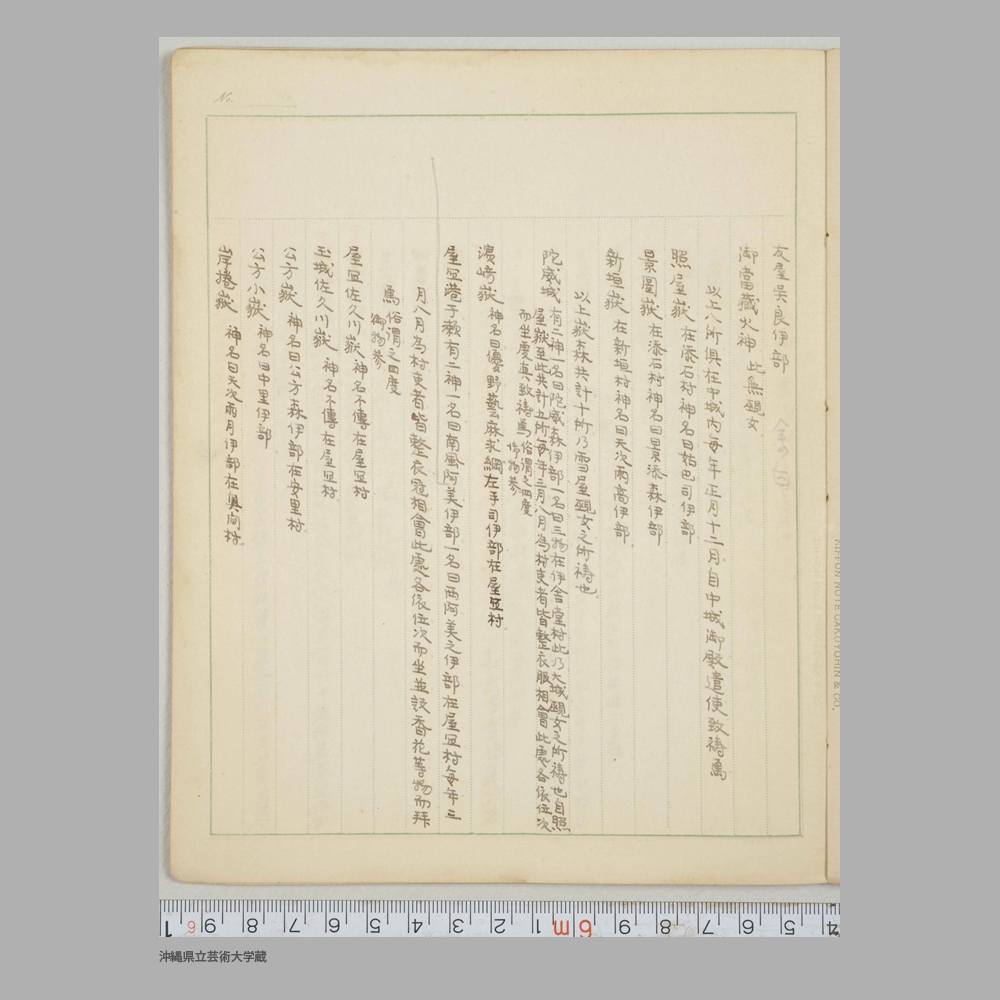 No.
友屋吳良伊部
御當藏火神 此無覡女
以上八所俱在中城內每年正月十二月自中城御殿遣使致禱焉
照屋嶽 在添石村神名曰姑巴司伊部
景圖嶽 在添石村神名曰景添森伊部
新垣嶽 在新垣村神名曰天次雨高伊部
以上嶽森共計十所乃雪屋覡女之所禱也
陀威城 有二神一名曰陀威森伊部一名曰三物在伊舍堂村此乃大城覡女之所禱也自照
屋嶽至此共計五所每年二月八月為村吏者皆整衣服相會此處各依位次
而坐虔真致禱焉俗謂之四度
御物參
濱崎嶽 神名曰優野藝麻求綱左手司伊部在屋宜村
屋宜港子瀨有二神一名曰南風阿美伊部一名曰西阿美之伊部在屋宜村每年三
月八月為村吏者皆整衣冠相會此處各依位次而坐並設香花等物而拜
焉俗謂之四度
御物參
屋宜佐久川嶽 神名不傳在屋宜村
玉城佐久川嶽 神名不傳在屋宜村
公方嶽 神名曰公方森伊部在安里村
公方小嶽 神名曰中里伊部
岸捲嶽 神名曰天次雨月伊部在奧間村
NIPPON NOTE GAKUYOHIN & CO.
沖縄県立芸術大学蔵